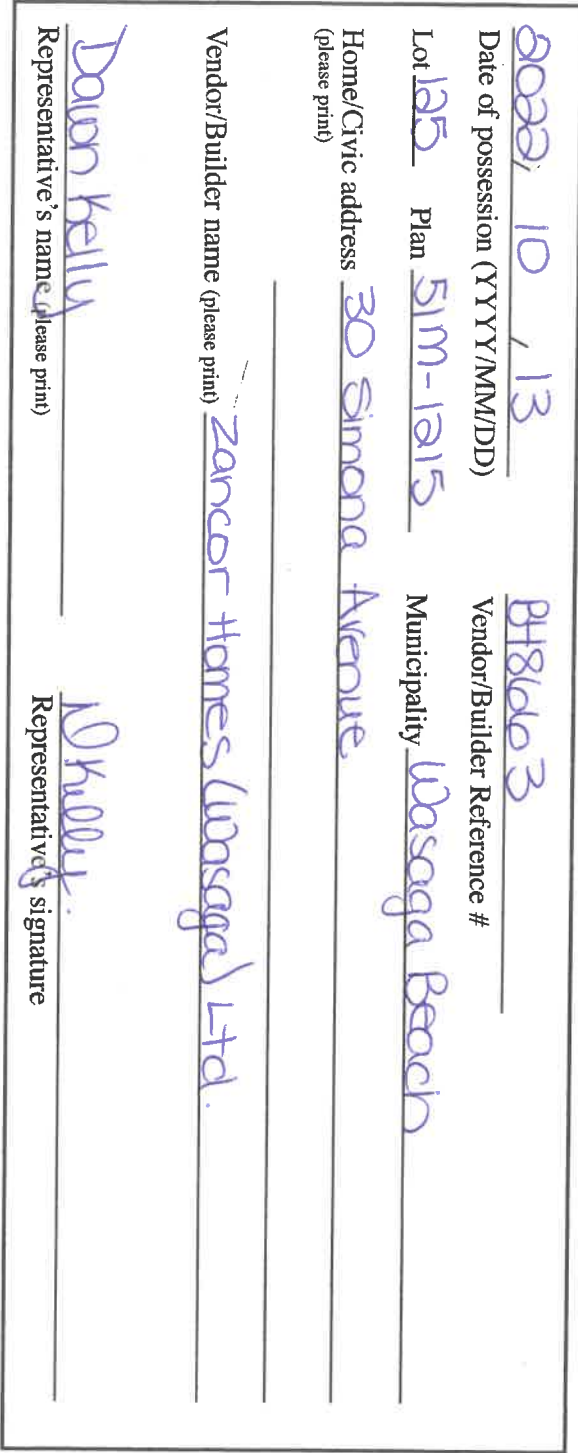 2022, 10, 13 BH8663
Date of possession (YYYY/MM/DD) Vendor/Builder Reference #
Lot 125 Plan 51M-1215 Municipality Wasaga Beach
Home/Civic address 30 Simona Avenue
(please print)
Vendor/Builder name (please print) Zancor Homes (Wasaga) Ltd.
Dawn Kelly DKelly.
Representative's name (please print) Representative's signature